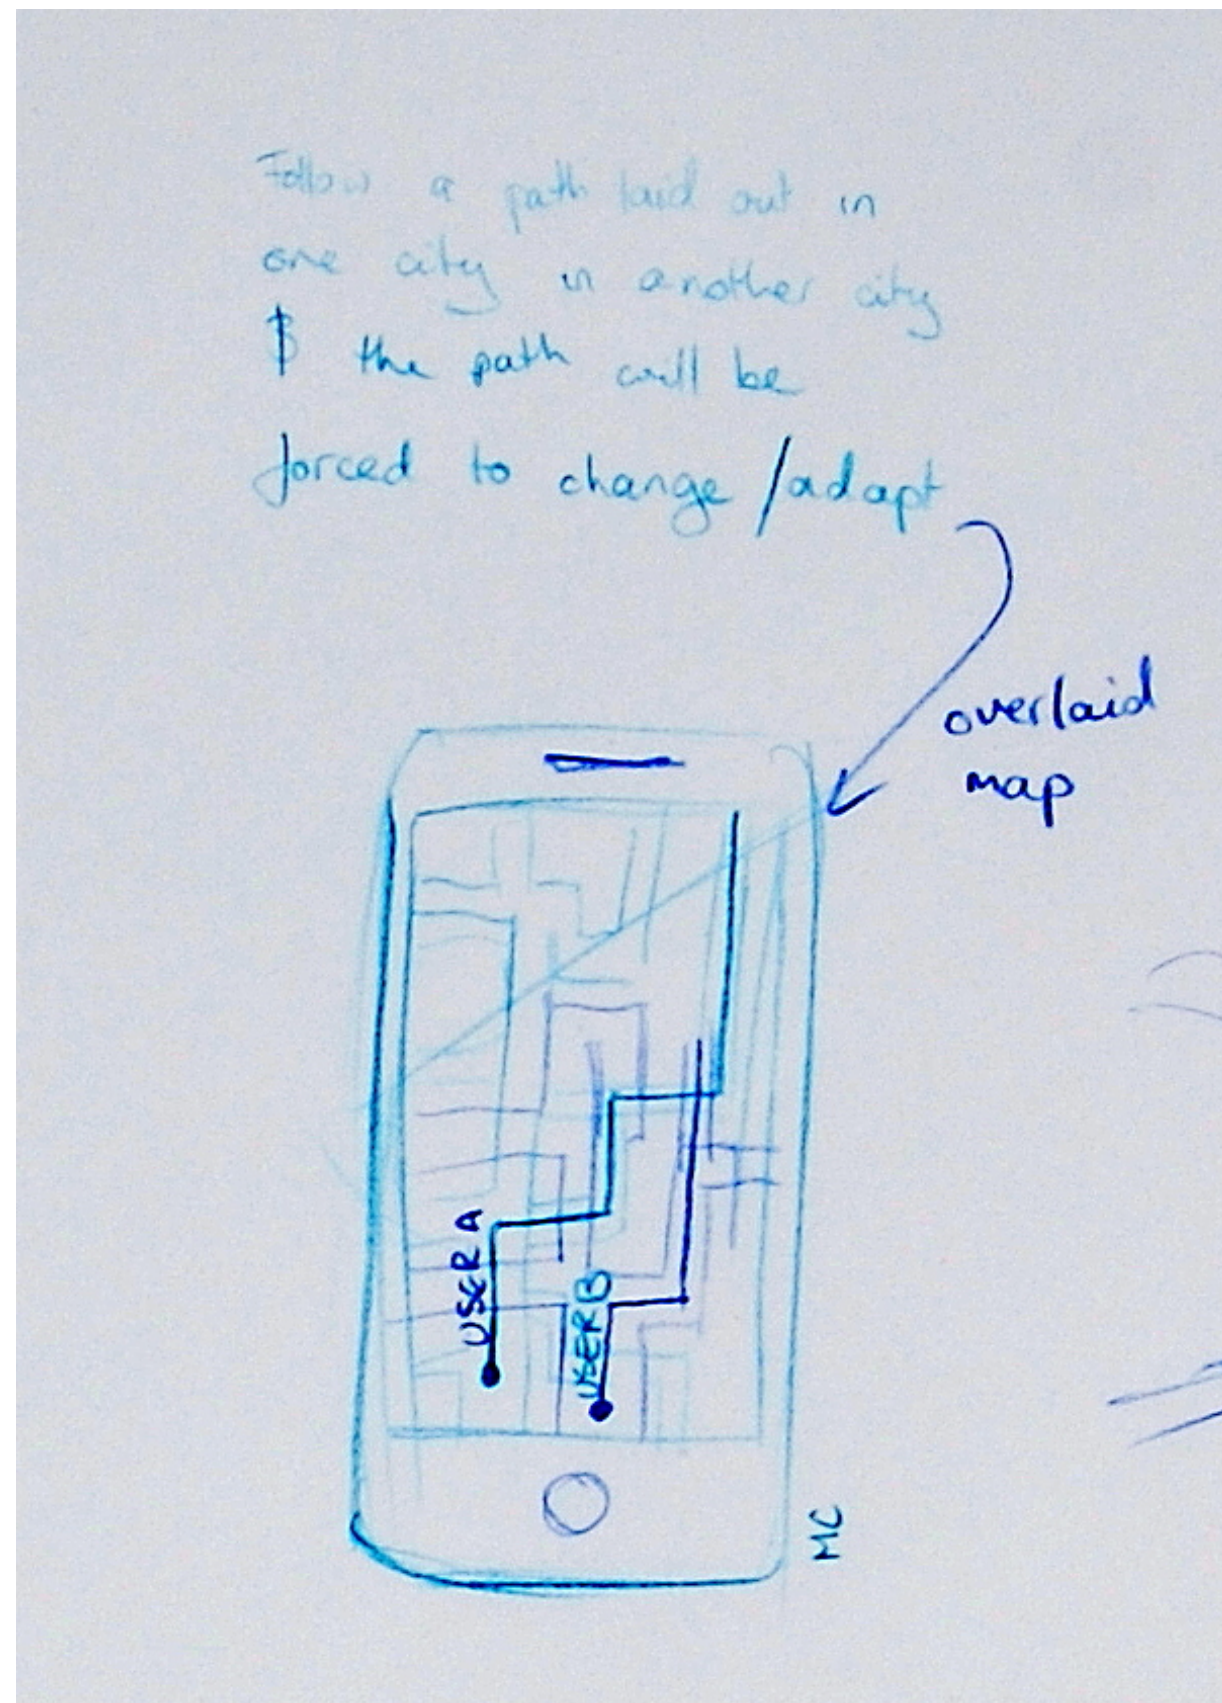 Follow a path laid out in
one city in another city
$ the path will be
forced to change / adapt
overlaid
map
USER A
USER B
MC